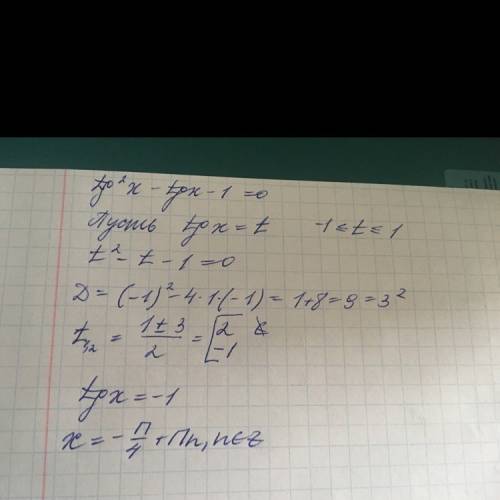 tg²x - tgx - 1 = 0
Пусть tgx = t -1 ≤ t ≤ 1
t² - t - 1 = 0
D = (-1)² - 4·1·(-1) = 1+8 = 9 = 3²
t₁,₂ = (1 ± 3)/2 = [2 -1
tgx = -1
x = -π/4 + πn, n∈Z